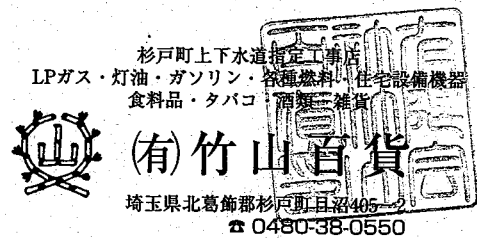 杉戸町上下水道指定工事店
LPガス・灯油・ガソリン・各種燃料・住宅設備機器
食料品・タバコ・酒類・雑貨
山
㈲竹山百貨
埼玉県北葛飾郡杉戸町目沼405-2
☎ 0480-38-0550